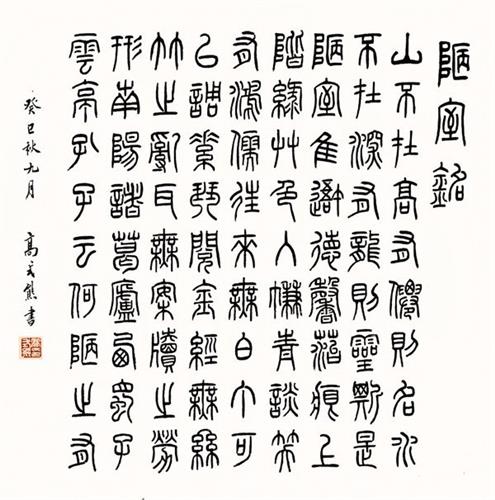 陋室銘
山不在高有僊則名水
不在深有龍則靈斯是
陋室隹吾德馨菭痕上
階綠艸色入幰青談笑
有鴻儒往來無白丁可
以調素琴閱金經無絲
竹之亂耳無案牘之勞
形南陽諸葛廬西蜀子
雲亭孔子云何陋之有
癸巳秋九月 高式熊書